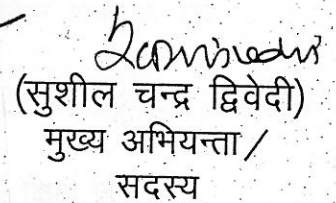 (सुशील चन्द्र द्विवेदी)
मुख्य अभियन्ता/
सदस्य